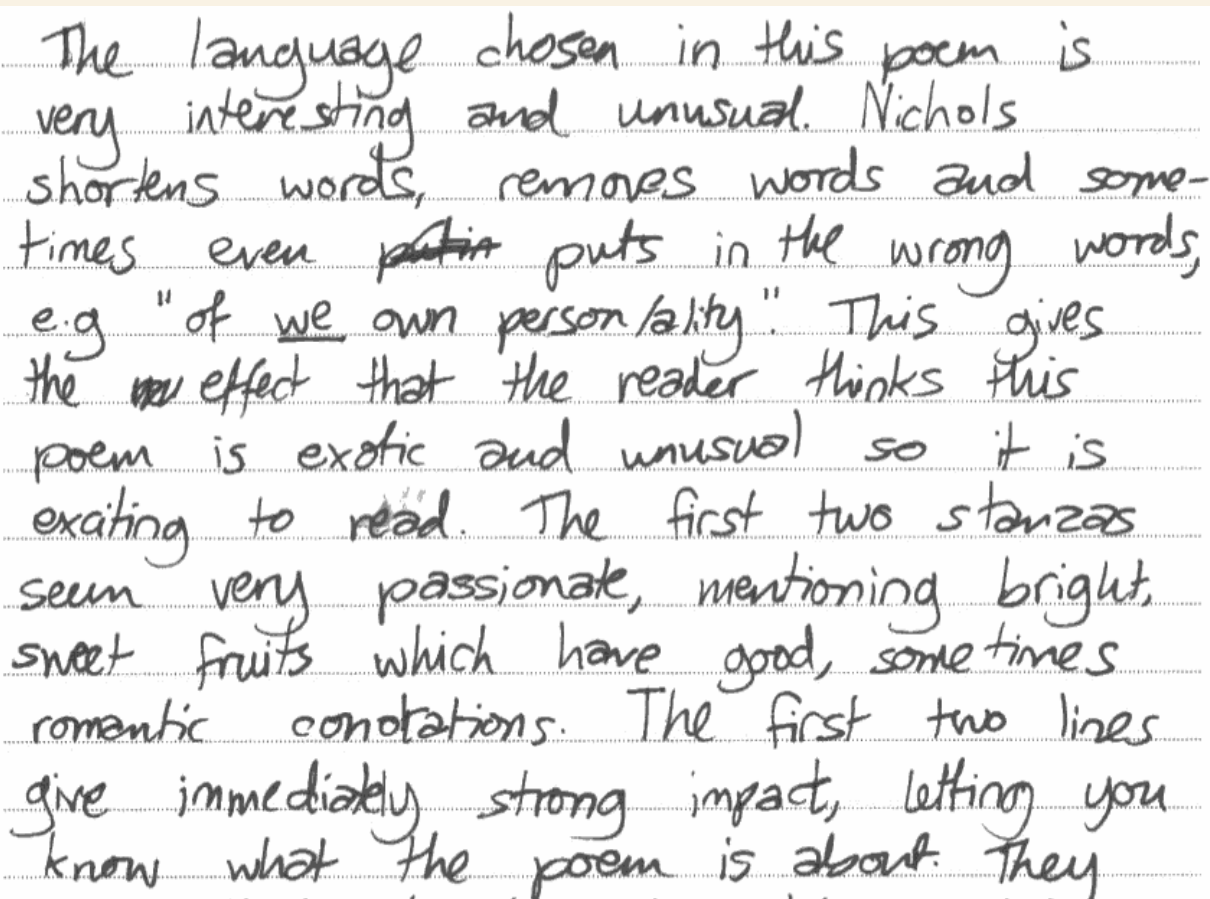 The language chosen in this poem is
very interesting and unusual. Nichols
shortens words, removes words and some-
times even puts in the wrong words,
e.g "of we own person/ality". This gives
the effect that the reader thinks this
poem is exotic and unusual so it is
exciting to read. The first two stanzas
seem very passionate, mentioning bright,
sweet fruits which have good, sometimes
romantic conotations. The first two lines
give immediately strong impact, letting you
know what the poem is about. They